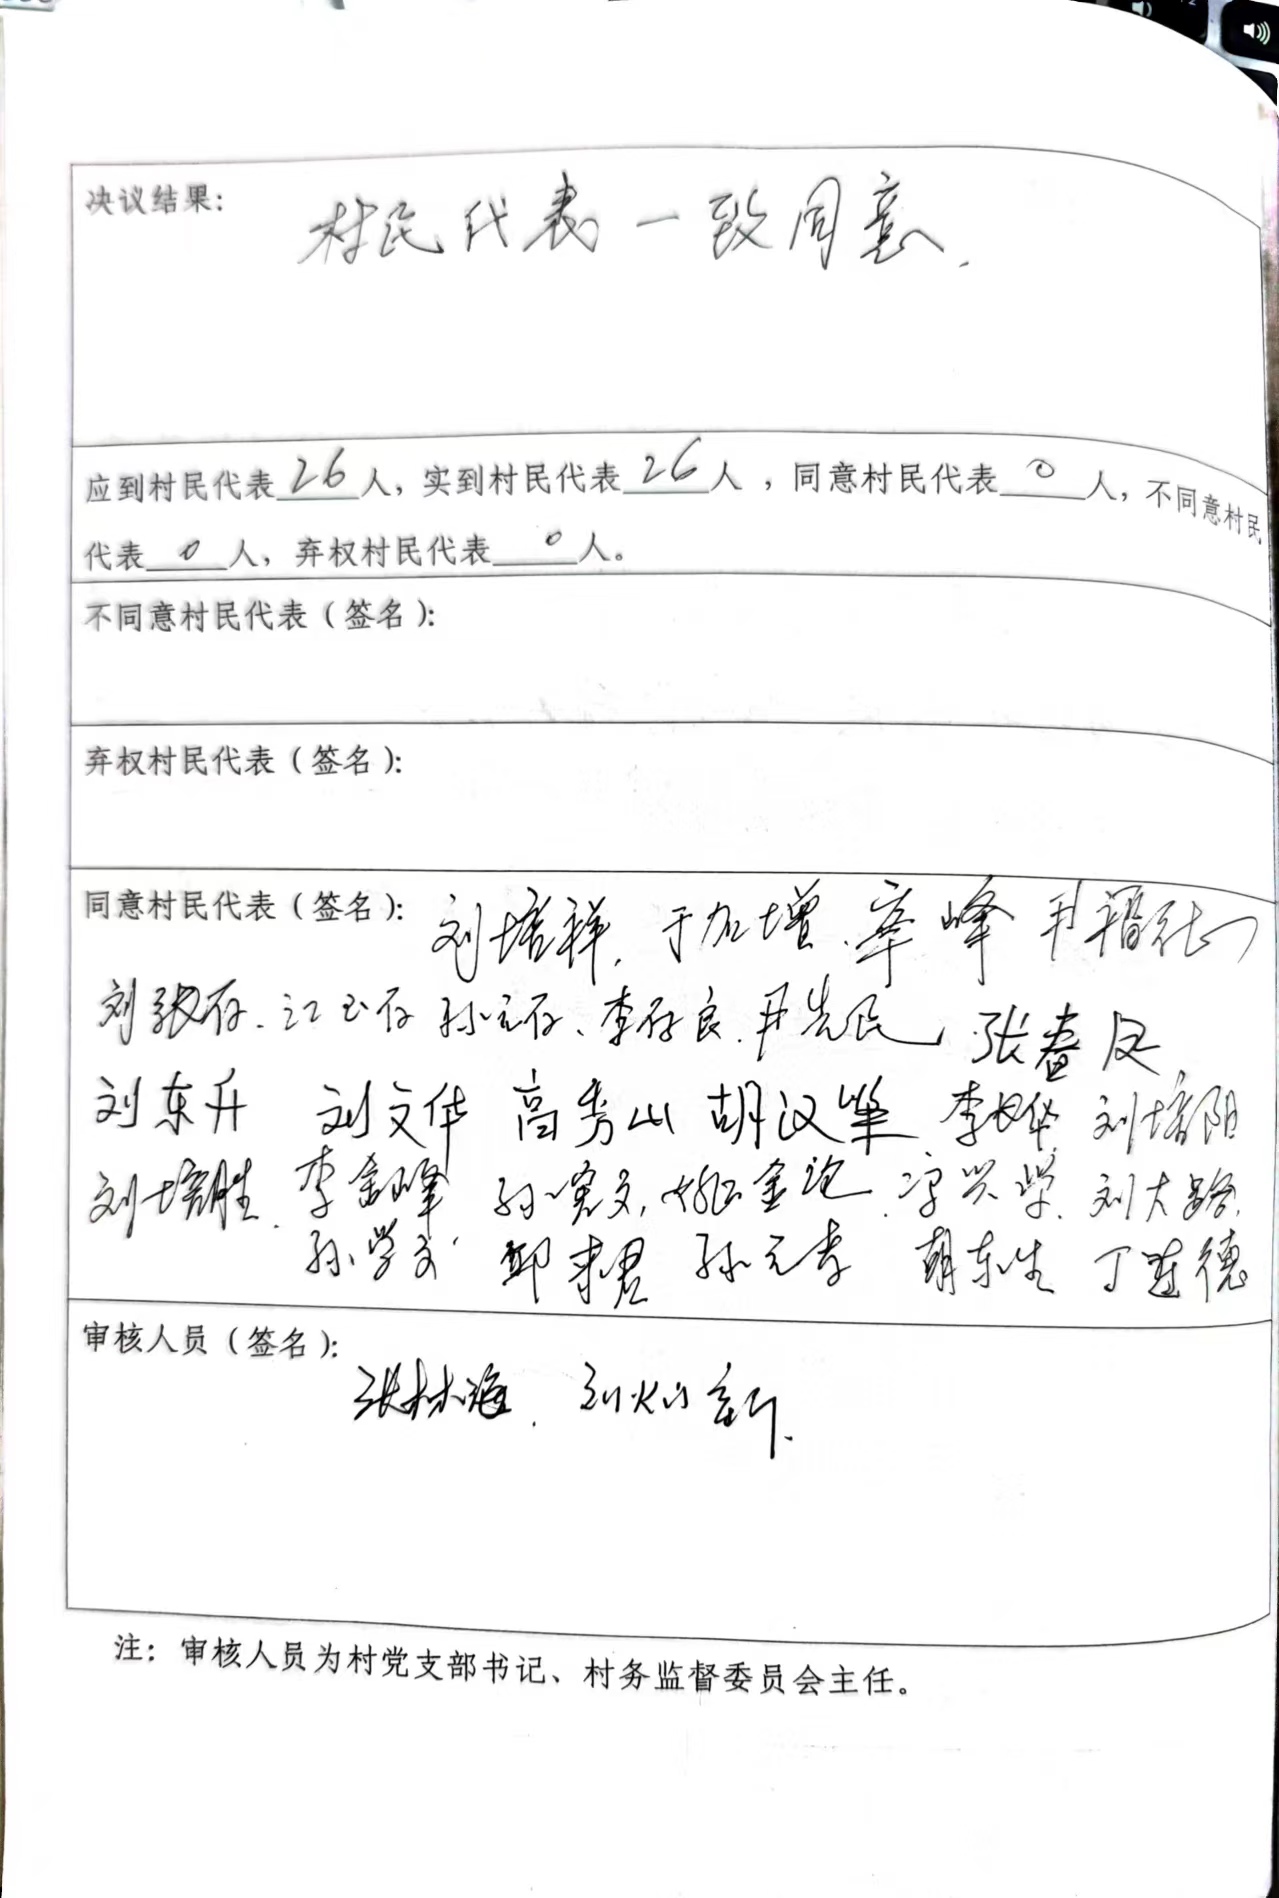 决议结果: 村民代表一致同意.
应到村民代表26人，实到村民代表26人，同意村民代表0人，不同意村民
代表0人，弃权村民代表0人。
不同意村民代表（签名）:
弃权村民代表（签名）:
同意村民代表（签名）: 刘培祥. 于加增. 辛峰
李存良. 尹先民 张春
刘东升 刘文华 高秀山 胡汉 刘培阳
刘培胜. 李金峰 孙宪文, 姚金 刘大路.
孙学文 孙元孝 胡东生 丁连德
审核人员（签名）:
张林海. 刘 新.
注：审核人员为村党支部书记、村务监督委员会主任。